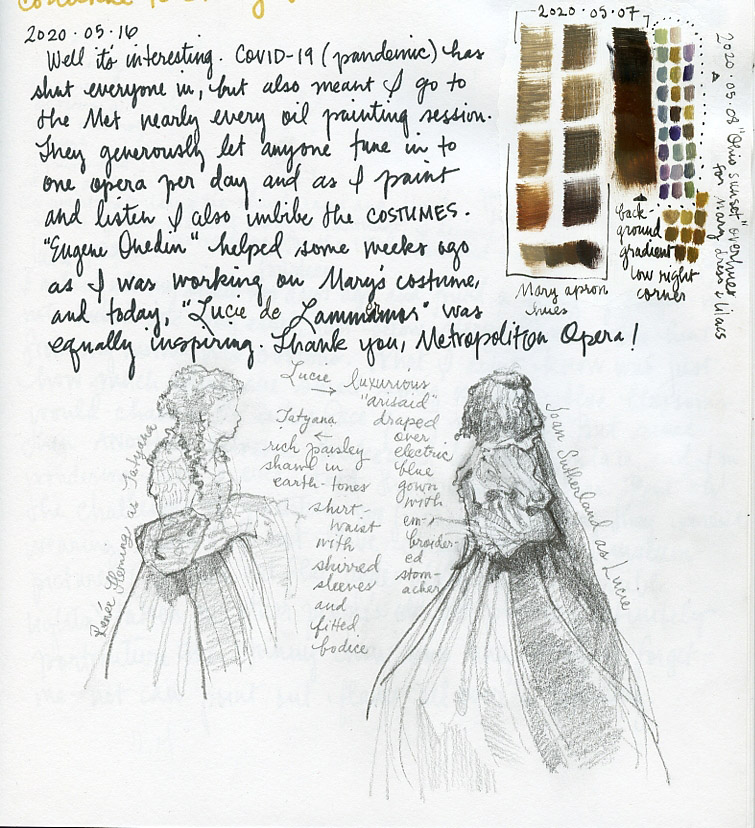 2020·05·16
Well it's interesting. COVID-19 (pandemic) has
shut everyone in, but also meant I go to
the Met nearly every oil painting session.
They generously let anyone tune in to
one opera per day and as I paint
and listen I also imbibe the COSTUMES.
"Eugene Onedin" helped some weeks ago
as I was working on Mary's costume,
and today, "Lucie de Lammamor" was
equally inspiring. Thank you, Metropolitan Opera!
2020·05·07
Mary apron
hues
back-
ground
gradient
low right
corner
2020·05·08 "Ohio sunset" overhues
for Mary dress & lilacs
Renée Fleming as Tatyana
Lucie →
luxurious
"arisaid"
draped
over
electric
blue
gown
with
em-
broider-
ed
stom-
acher
Tatyana
←
rich paisley
shawl in
earth-tones
shirt-
waist
with
shirred
sleeves
and
fitted
bodice
Joan Sutherland as Lucie